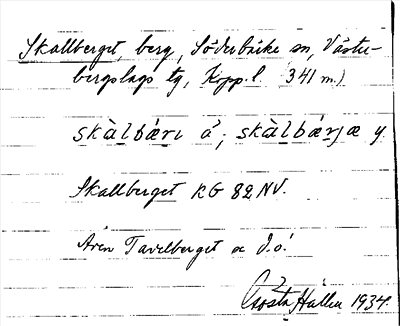 Skallberget, berg, Söderbärke sn, Väster-
bergslags tg, Kopp. l. (341 m.)
skàlbæ̀rı å; skàlbæ̀rjæ y
Skallberget RG 82 NV.
Även Tavelberget
Gösta Hallén 1934.